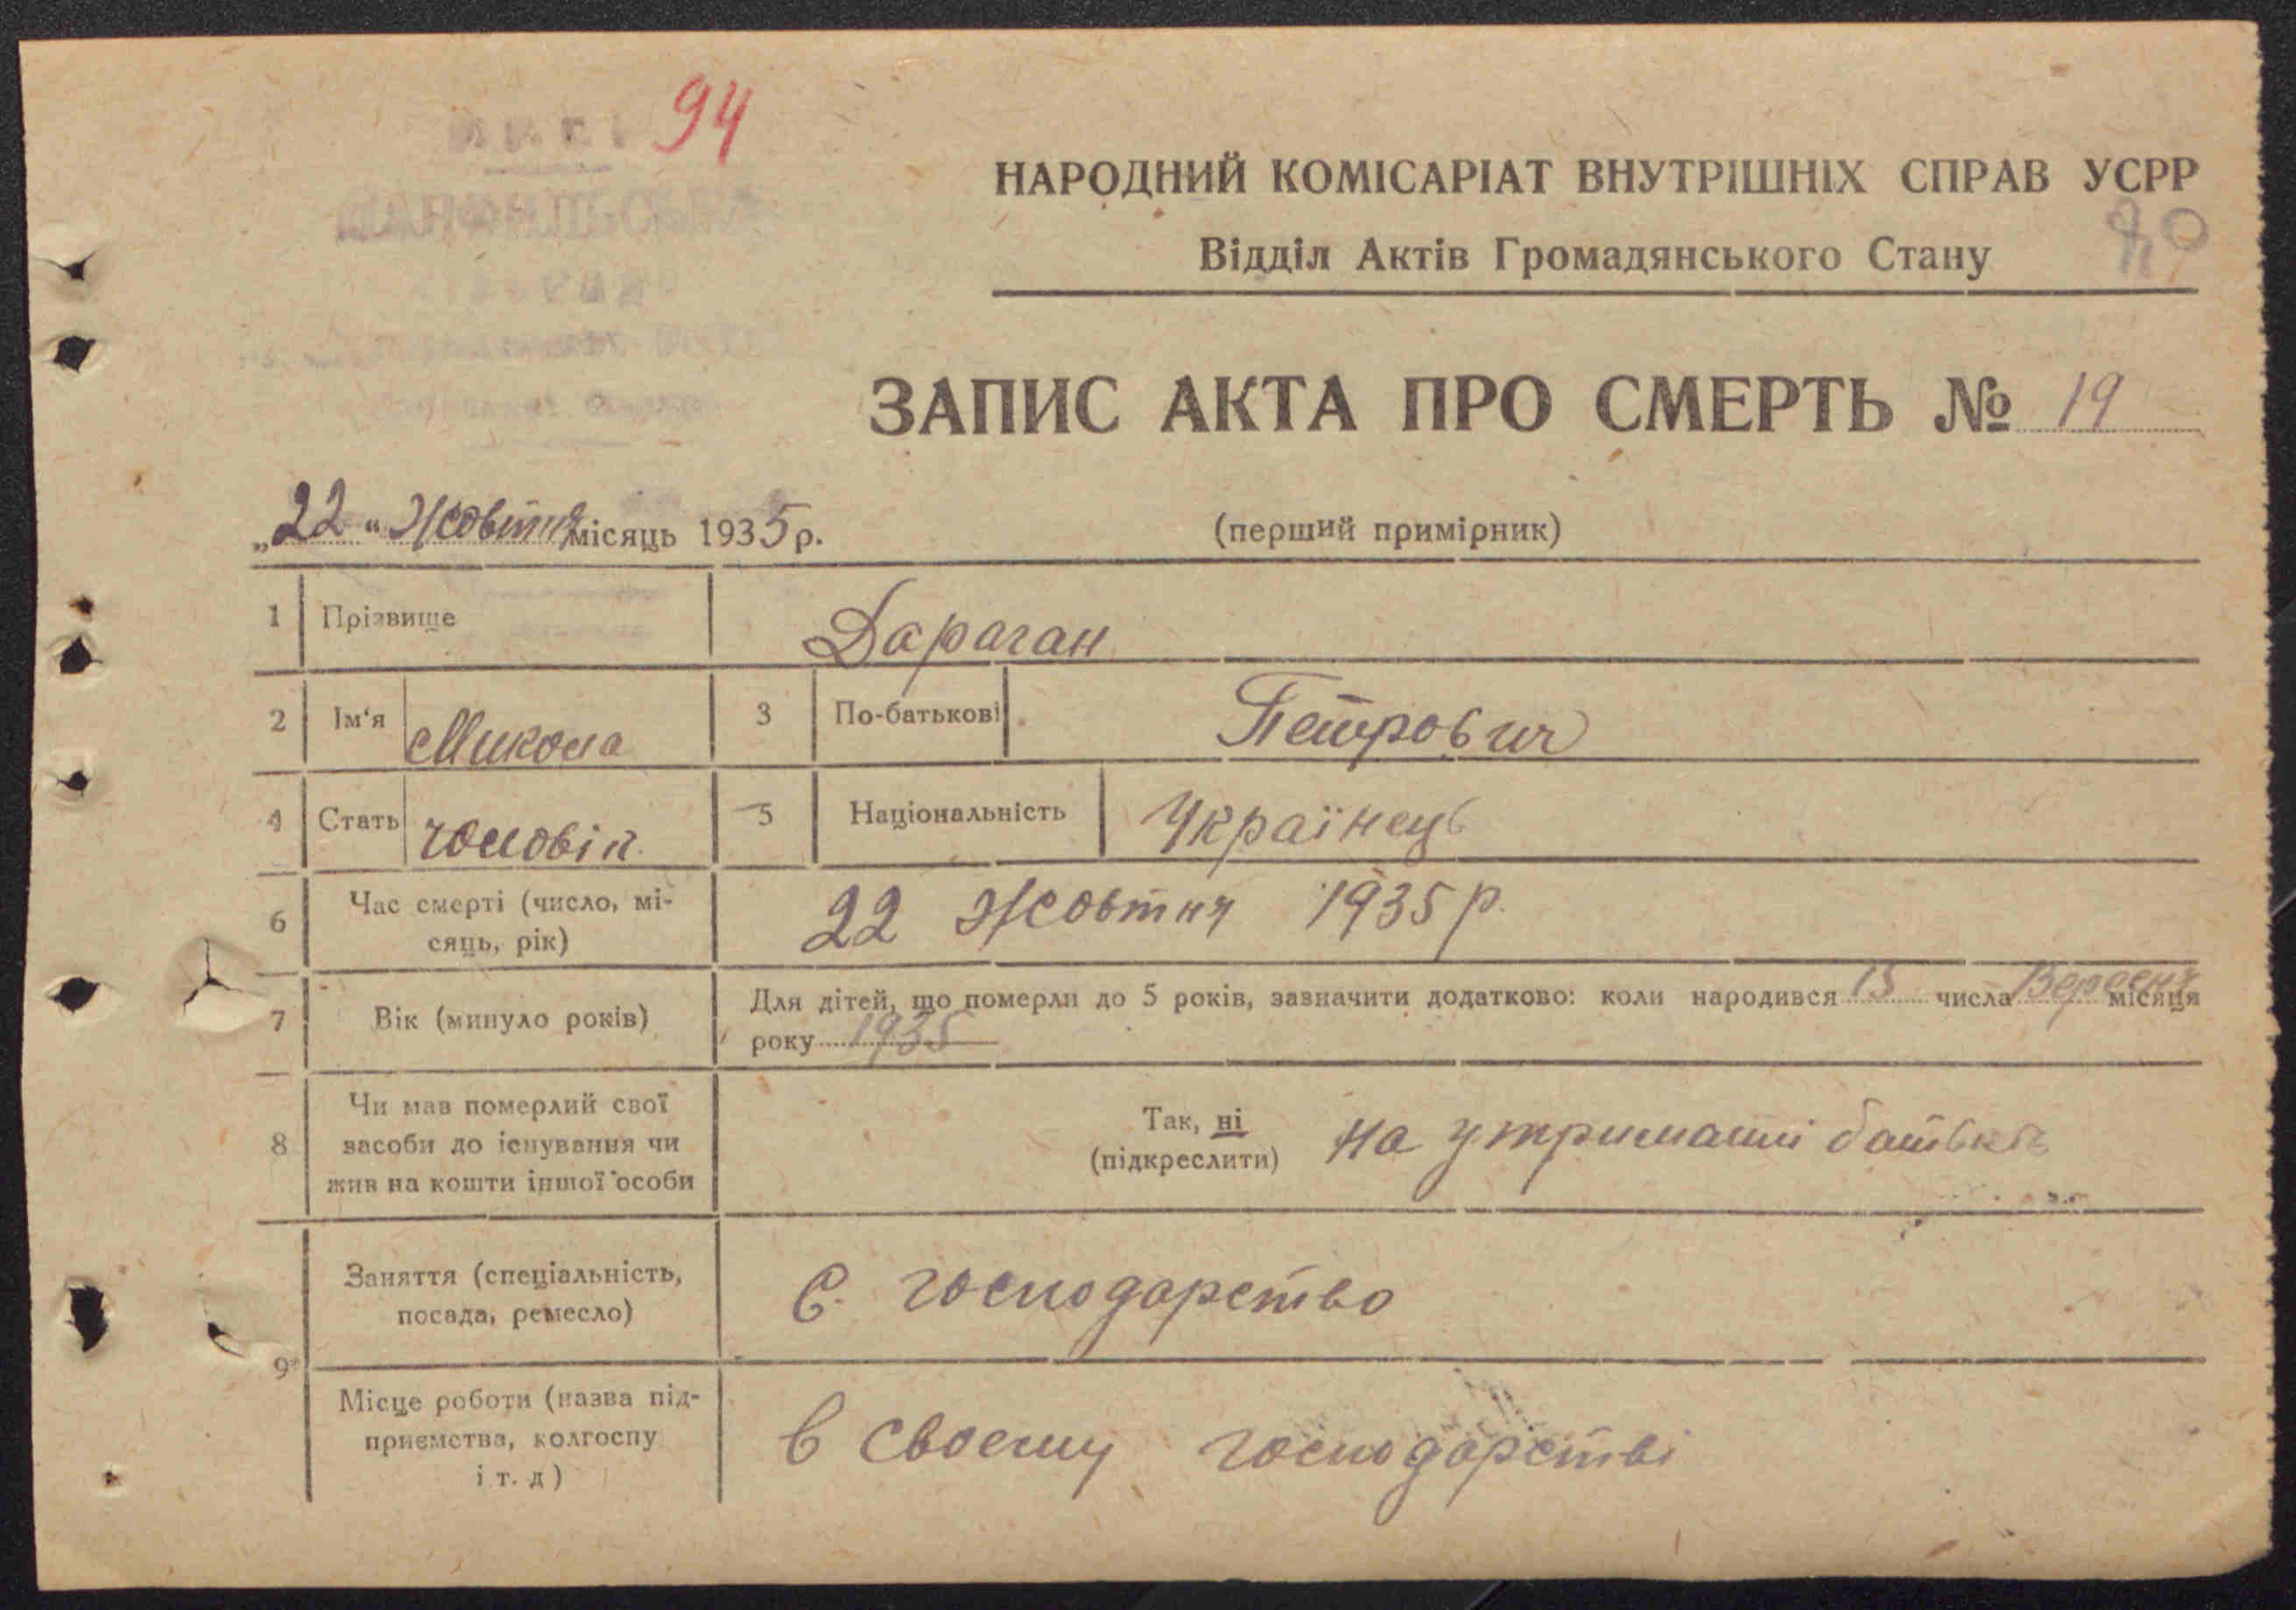 94
НАРОДНИЙ КОМІСАРІАТ ВНУТРІШНІХ СПРАВ УСРР
Відділ Актів Громадянського Стану
ЗАПИС АКТА ПРО СМЕРТЬ № 19
„22“ Жовтня місяць 1935 р.
(перший примірник)
1 Прізвище Дараган
2 Ім'я Микола 3 По-батькові Петрович
4 Стать чоловіч. 5 Національність Українець
6 Час смерті (число, мі-
сяць, рік)
22 Жовтня 1935 р.
7 Вік (минуло років)
Для дітей, що померли до 5 років, зазначити додатково: коли народився 15 числа Вересня місяця
року 1935
8 Чи мав померлий свої
засоби до існування чи
жив на кошти іншої особи
Так, ні
(підкреслити)
на утриманні батьків
9
Заняття (спеціальність,
посада, ремесло)
С. господарство
Місце роботи (назва під-
приємства, колгоспу
і т. д)
в своєму господарстві